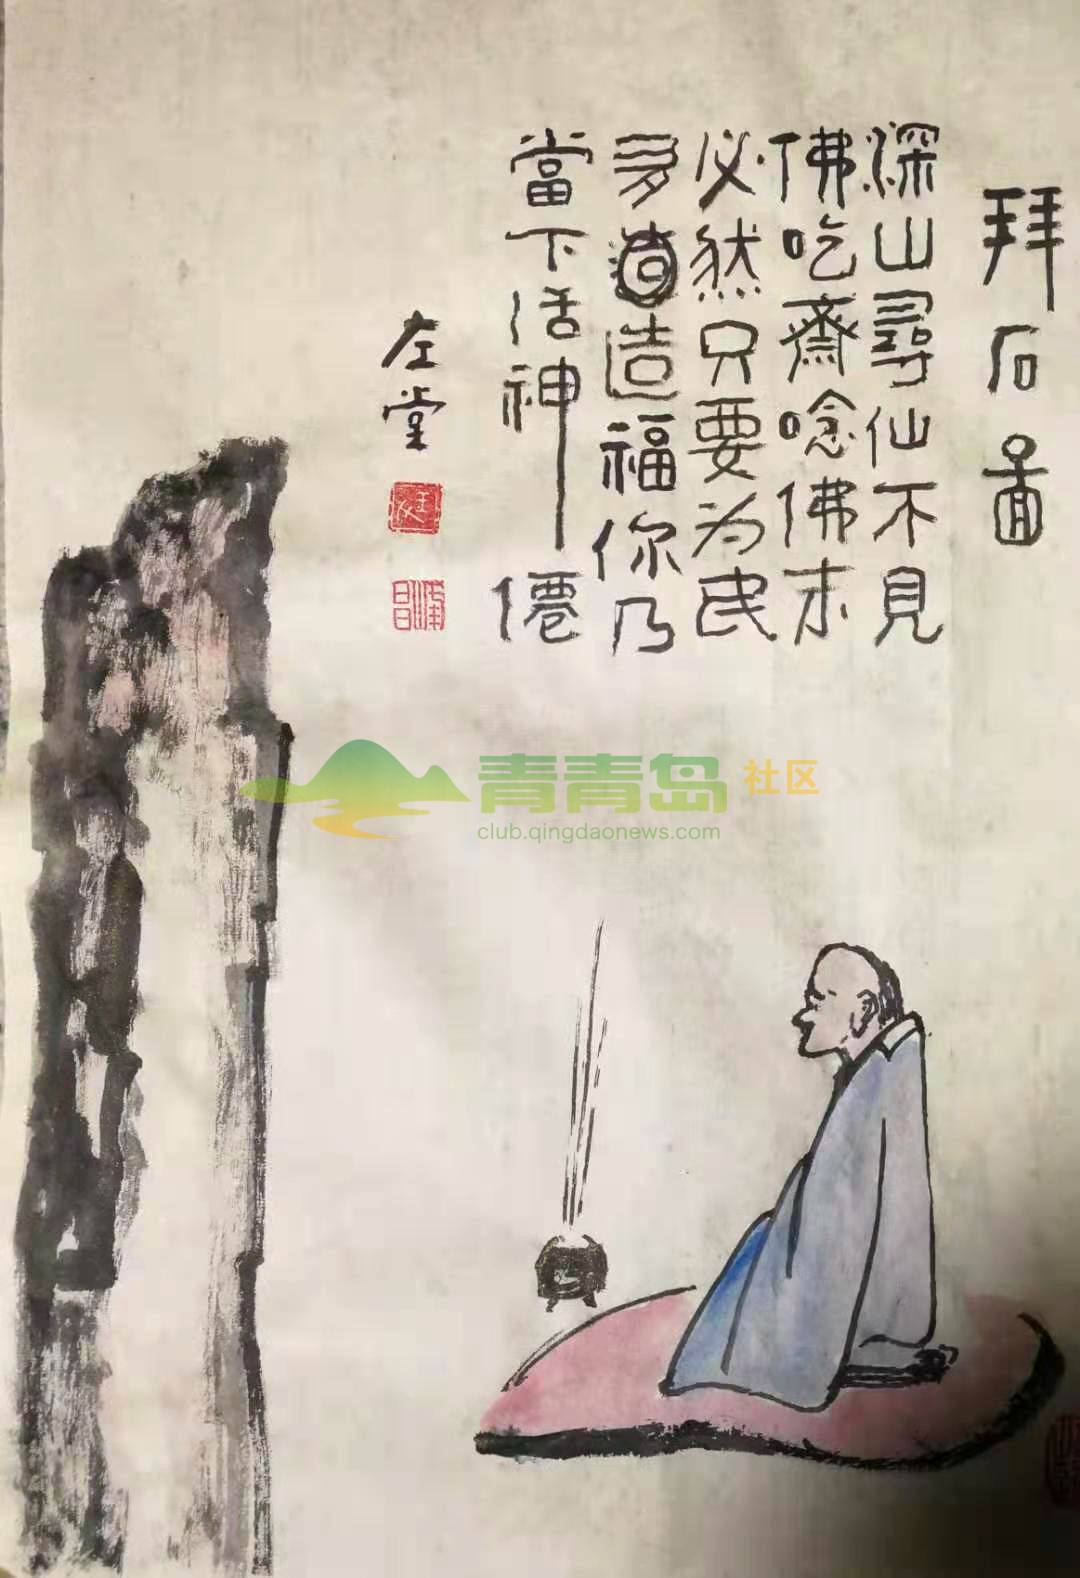 拜石圖
深山尋仙不見
佛吃齋唸佛未
必然只要为民
多造福你乃
當下活神僊
左堂
青青岛社区
club.qingdaonews.com